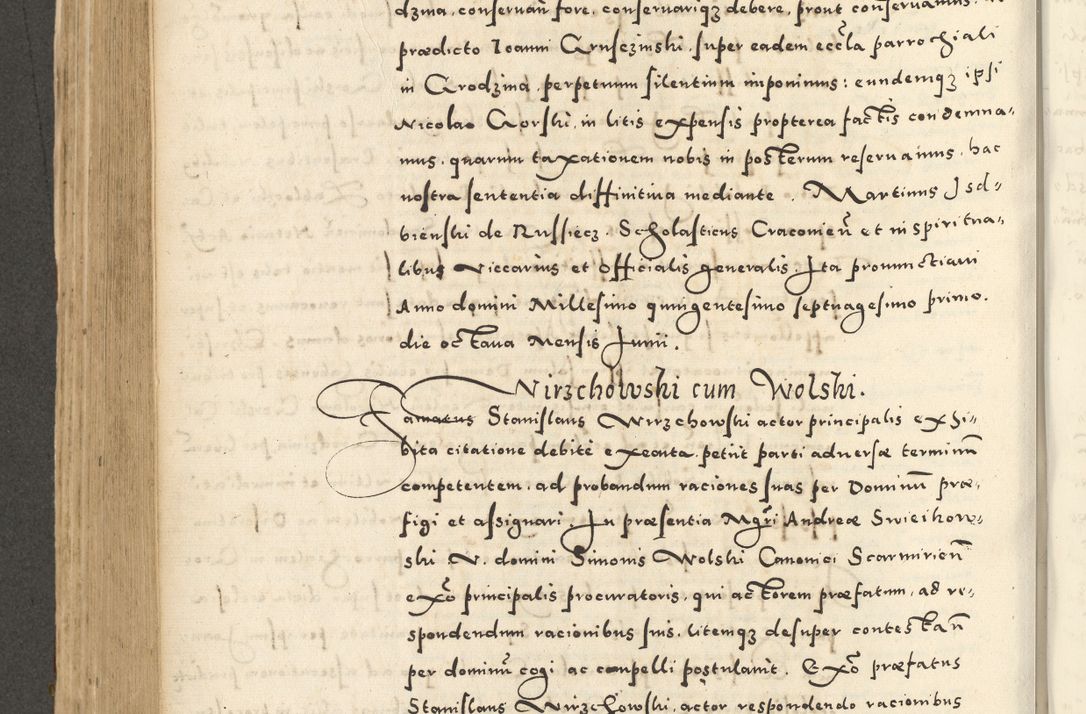 dzima, conservan fore, conservariqz debere, prout conservamus.
prædicto Ioanni Grusczinski, super eadem eccła parrochiali
in Grodzina, perpetuum silentium imponimus: eundemqz ipsi
Nicolao Gorski, in litis expensis propterea factis condemna-
mus, quarum taxationem nobis in posterum reservamus. hac
nostra sententia diffinitiva mediante. Martinus Isd-
bienski de Russiecz. Scholasticus Cracovień et in spiritua-
libus Viccarius et Officialis generalis. Ita pronunctiavi
Anno domini Millesimo quingentesimo septuagesimo primo.
die octava Mensis Iunii.
Wirzchowski cum Wolski.
Famatus Stanislaus Wirzchowski actor principalis exhi-
bita citatione debitè executa, petiit parti adversæ terminū
competentem, ad probandum raciones suas per Dominū præ-
figi et assignari. In præsentia Mgri Andreæ Swieihow-
ski V. domini Simonis Wolski Canonici Scarmirień
exo principalis procuratoris, qui actorem præfatum, ad re-
spondendum racionibus suis, litemqz desuper contestań
per dominū cogi ac compelli postulavit. Exo præfatus
Stanislaus Wirzchowski, actor respondendo racionibus